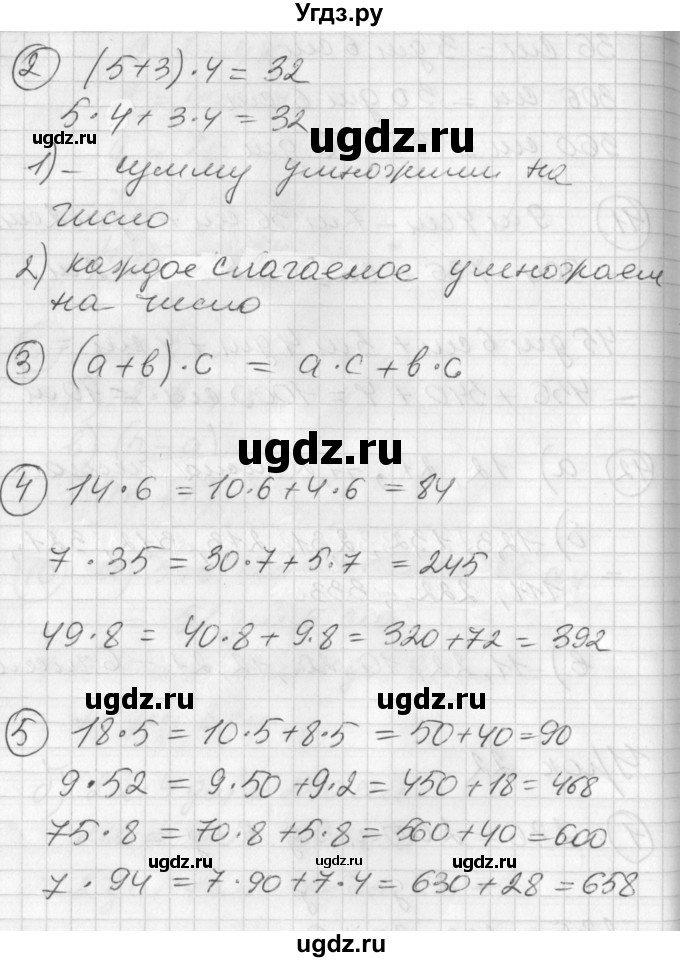 Угдз.ру
② (5+3)·4 = 32
5·4 + 3·4 = 32
ugdz.ru
ugdz.ru
1) – сумму умножили на
число
2) каждое слагаемое умножаем
на число
③ (а+в)·с = а·с + в·с
ugdz.ru
④ 14·6 = 10·6 + 4·6 = 84
7·35 = 30·7 + 5·7 = 245
49·8 = 40·8 + 9·8 = 320 + 72 = 392
ugdz.ru ugdz.ru
⑤ 18·5 = 10·5 + 8·5 = 50 + 40 = 90
9·52 = 9·50 + 9·2 = 450 + 18 = 468
75·8 = 70·8 + 5·8 = 560 + 40 = 600
ugdz.ru ugdz.ru ugdz.ru
7·94 = 7·90 + 7·4 = 630 + 28 = 658
ugdz.ru